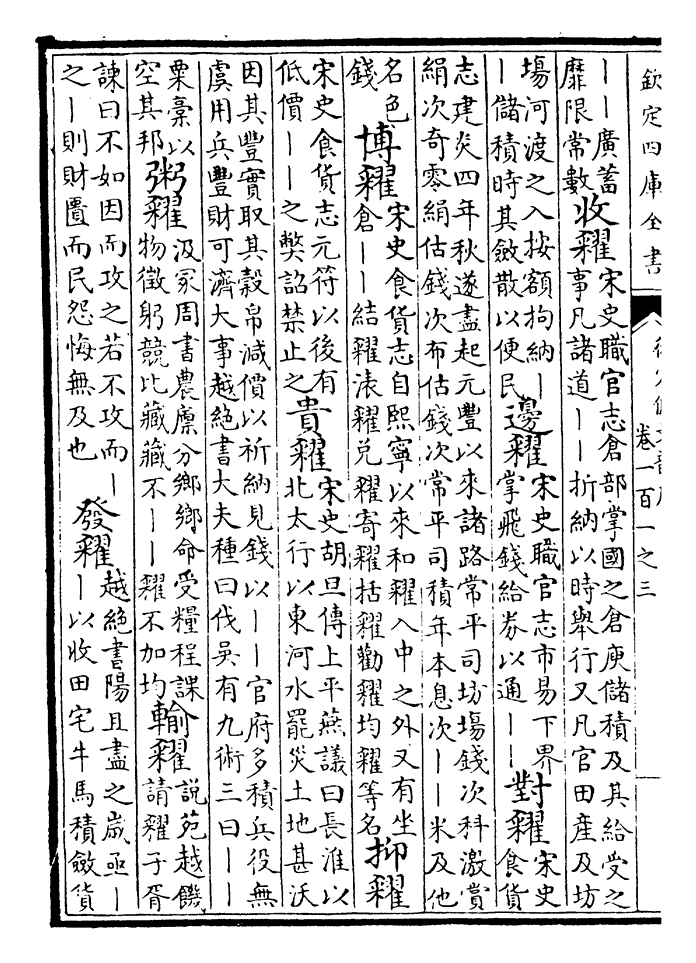 欽定四庫全書
卷一百一之三
——廣蓄
靡限常數
收糴
宋史職官志倉部掌國之倉庾儲積及其給受之
事凡諸道——折納以時舉行又凡官田產及坊
塲河渡之入按額拘納—
—儲積時其斂散以便民
邊糴
宋史職官志市易下界
掌飛錢給券以通——
對糴
宋史
食貨
志建炎四年秋遂盡起元豐以來諸路常平司坊塲錢次科激賞
絹次奇零絹估錢次布估錢次常平司積年本息次——米及他
名色
錢
博糴
宋史食貨志自熙寧以來和糴入中之外又有坐
倉——結糴俵糴兌糴寄糴括糴勸糴均糴等名
抑糴
宋史食貨志元符以後有
低價——之獘詔禁止之
貴糴
宋史胡旦傳上平燕議曰長淮以
北太行以東河水罷災土地甚沃
因其豐實取其穀帛減價以祈納見錢以——官府多積兵役無
虞用兵豐財可濟大事越絕書大夫種曰伐吳有九術三曰——
粟槀以
空其邦
粥糴
汲冢周書農廩分鄉鄉命受糧程課
物徵躬競比藏藏不——糴不加均
輸糴
說苑越饑
請糴子胥
諫曰不如因而攻之若不攻而—
之—則財匱而民怨悔無及也
發糴
越絕書陽且盡之歲亟—
—以收田宅牛馬積斂貨